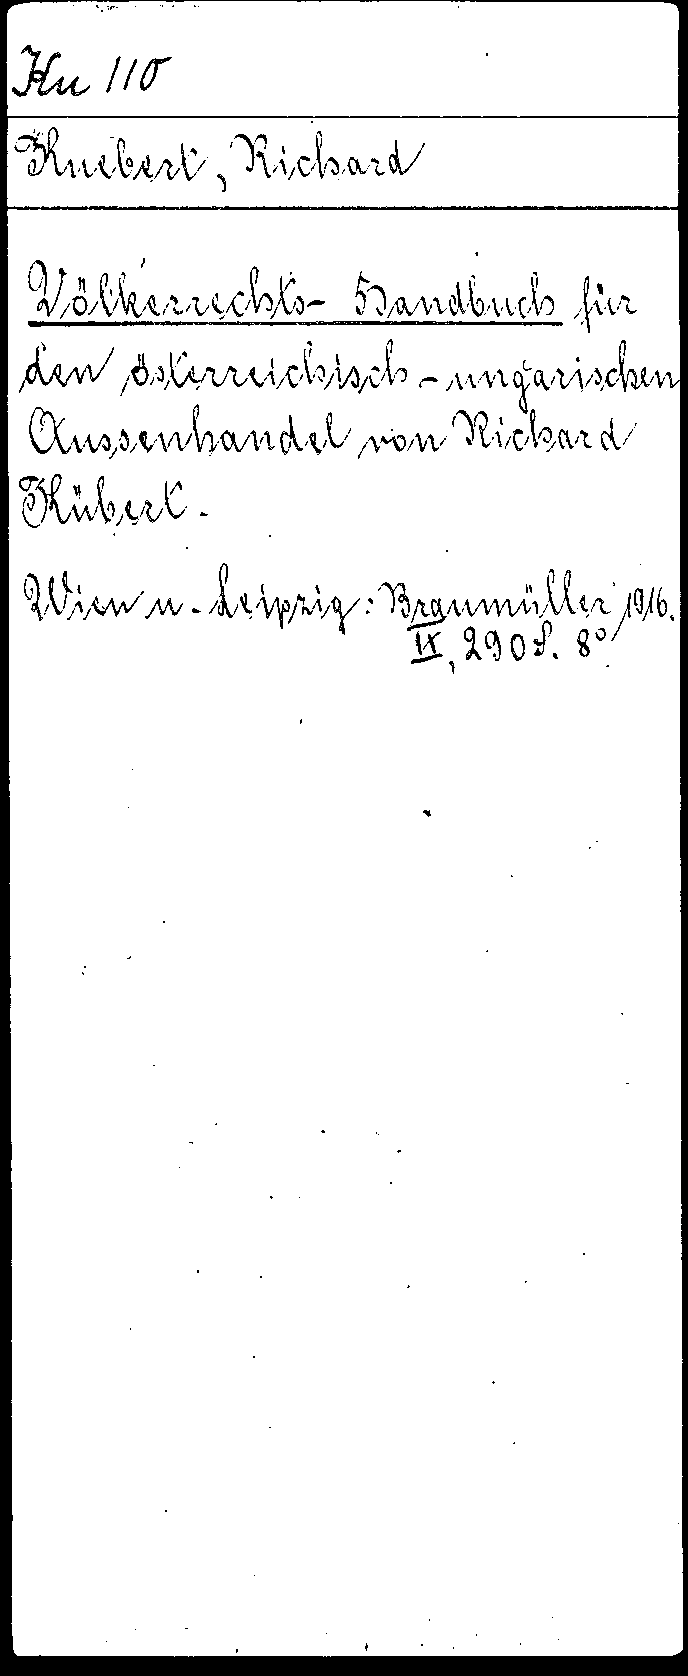 Ku 110
Kuebert, Richard
Völkerrechts- Handbuch für
den österreichisch-ungarischen
Aussenhandel von Richard
Kübert.
Wien u. Leipzig: Braumüller 1916.
IX, 290 S. 8°